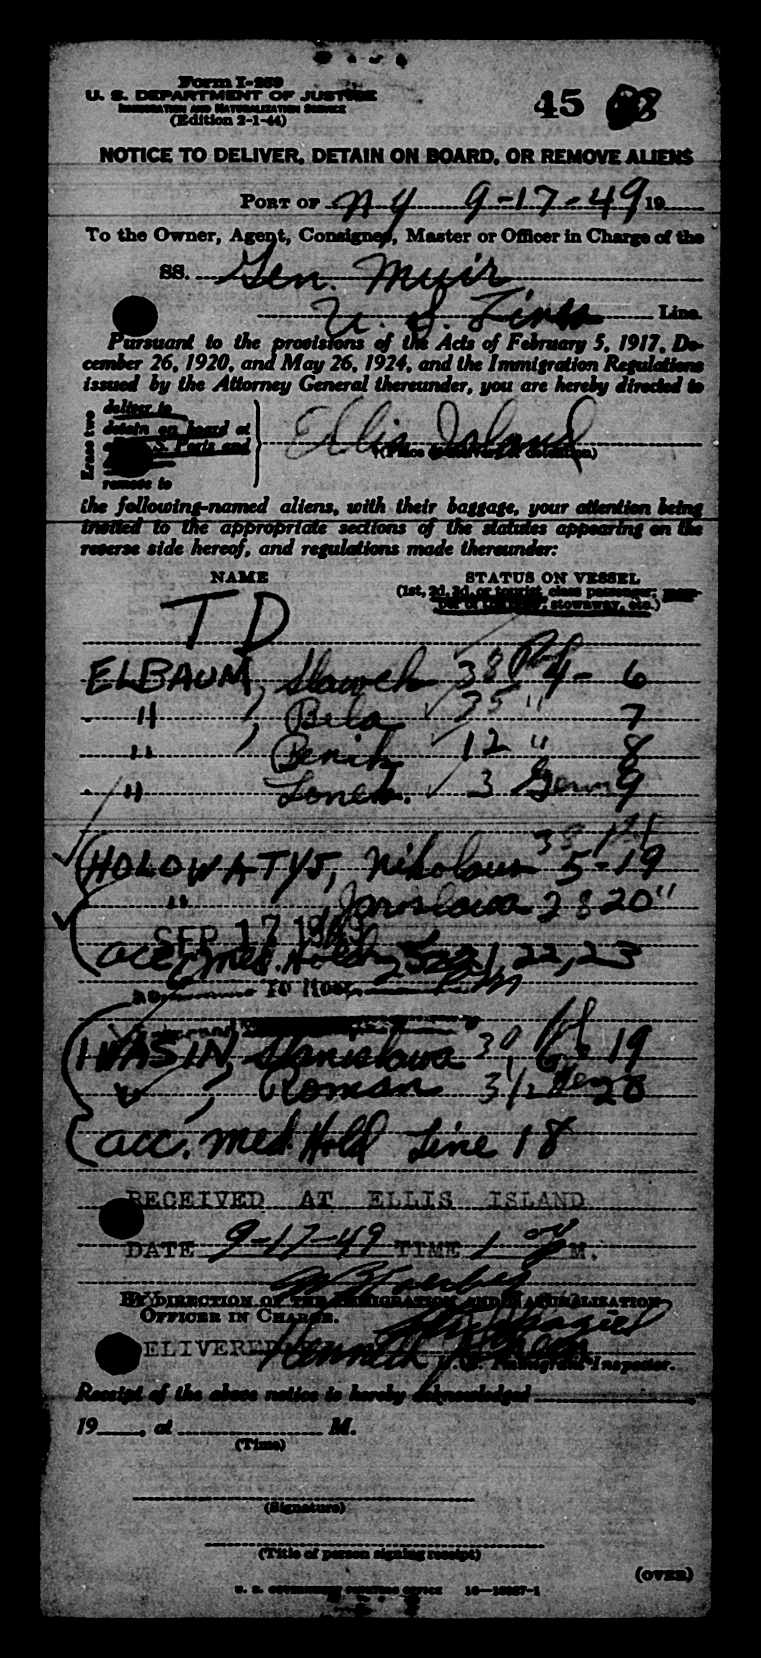 Form I-259
U. S. DEPARTMENT OF JUSTICE
IMMIGRATION AND NATURALIZATION SERVICE
(Edition 2-1-44)
45
NOTICE TO DELIVER, DETAIN ON BOARD, OR REMOVE ALIENS
PORT OF NY 9-17-49 19
To the Owner, Agent, Consignee, Master or Officer in Charge of the
SS. Gen. Muir
U. S. Lines Line.
Pursuant to the provisions of the Acts of February 5, 1917, De-
cember 26, 1920, and May 26, 1924, and the Immigration Regulations
issued by the Attorney General thereunder, you are hereby directed to
Erase two
deliver to
detain on board at
U.S. Ports and
remove to
Ellis Island
(Place of detention)
the following-named aliens, with their baggage, your attention being
invited to the appropriate sections of the statutes appearing on the
reverse side hereof, and regulations made thereunder:
NAME STATUS ON VESSEL
(1st, 2d, 3d, or tourist class passenger; mem-
ber of the crew, stowaway, etc.)
TD
ELBAUM, Slawek 38 Pol 4- 6
" , Bela 35 " 7
" , Benik 12 " 8
" Lonek. 3 Germ 9
HOLOWATYJ, Nikolaus 5-19
" , Jaroslawa 28 20 "
SEP 17 1949
acc. med. Hold 21, 22, 23
IWASIN, Stanislawa 30 Pol 19
" , Roman 3 1/2 Ger 20
acc. med. Hold Line 18
RECEIVED AT ELLIS ISLAND
DATE 9-17-49 TIME 1 M.
BY DIRECTION OF THE IMMIGRATION AND NATURALIZATION
OFFICER IN CHARGE.
DELIVERED Kenneth
U. S. Immigrant Inspector.
Receipt of the above notice is hereby acknowledged
19 , at M.
(Time)
(Signature)
(Title of person signing receipt)
(OVER)
U. S. GOVERNMENT PRINTING OFFICE